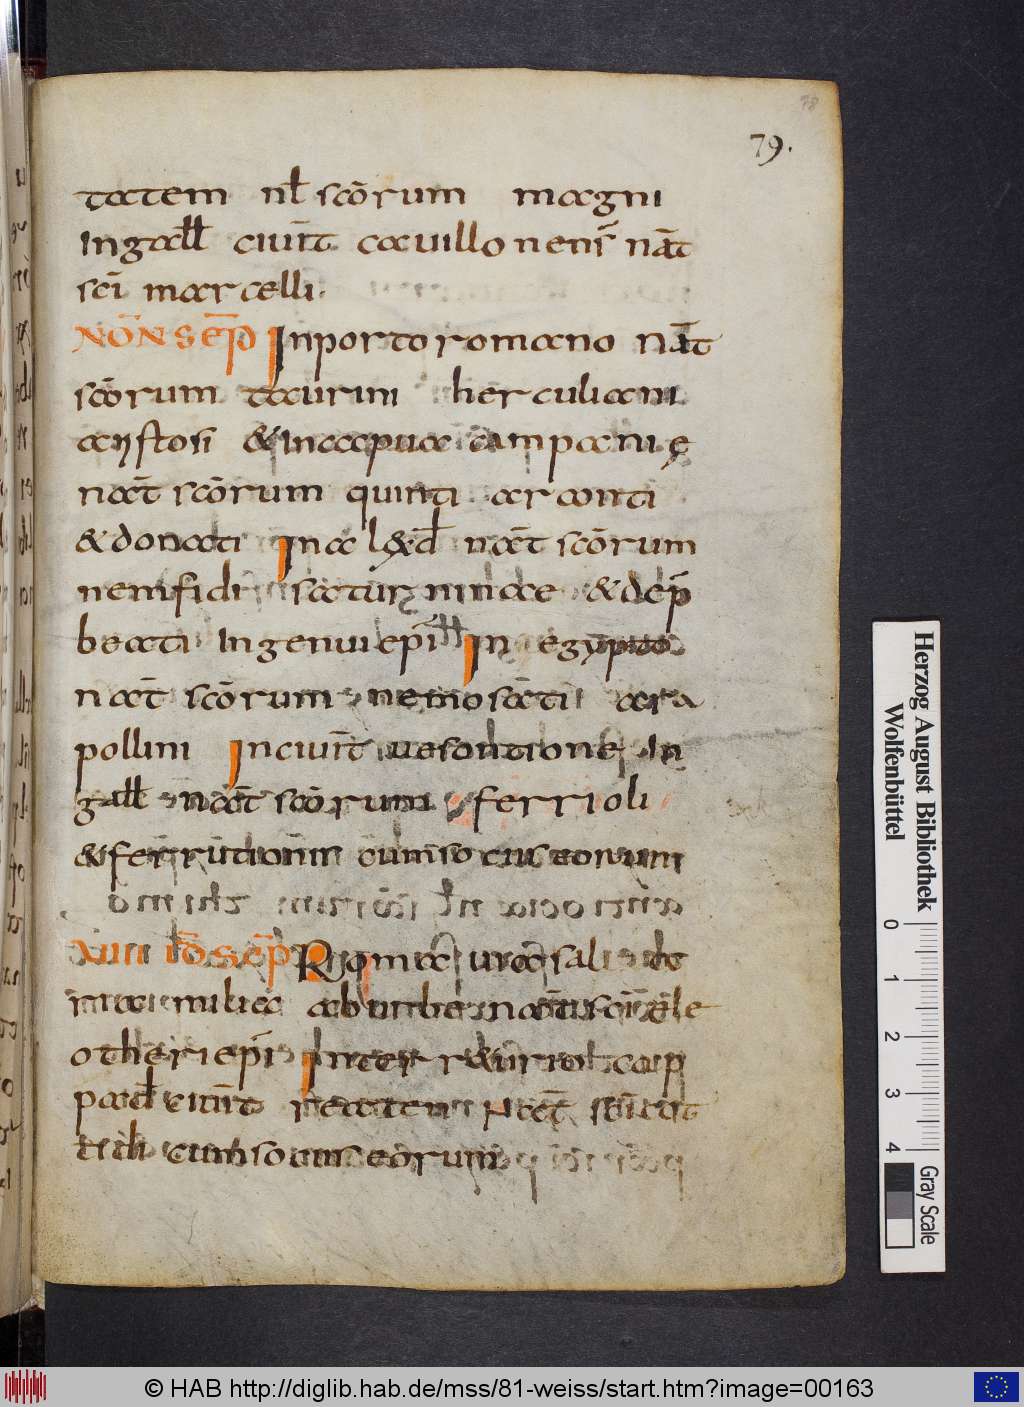 78
79.
tatem nł scōrum magni
In gałł ciuiт̄ cauillonenš nāt
scī marcelli.
NŌN SEP̄ In porto romano nāt
scōrum taurini herculiani
aristosi & In capua campanię
nāt scōrum quinti arconti
& donati In alexđ nāt scōrum
nemfidi saturninae & dep̄
beati Ingenui epī In egypto
nāt scōrum nemosāti ara
pollini In ciuiт̄ uesontione In
gałł nāt scōrum ferrioli
& ferrutionis cum sociis eorum
VIII ID̄ SEP̄ Romæ uia sali
ab urbe
otheri epī Inter
pađ ciuiт̄
cum sociis eōrum
Herzog August Bibliothek
Wolfenbüttel
0 1 2 3 4
Gray Scale
© HAB http://diglib.hab.de/mss/81-weiss/start.htm?image=00163